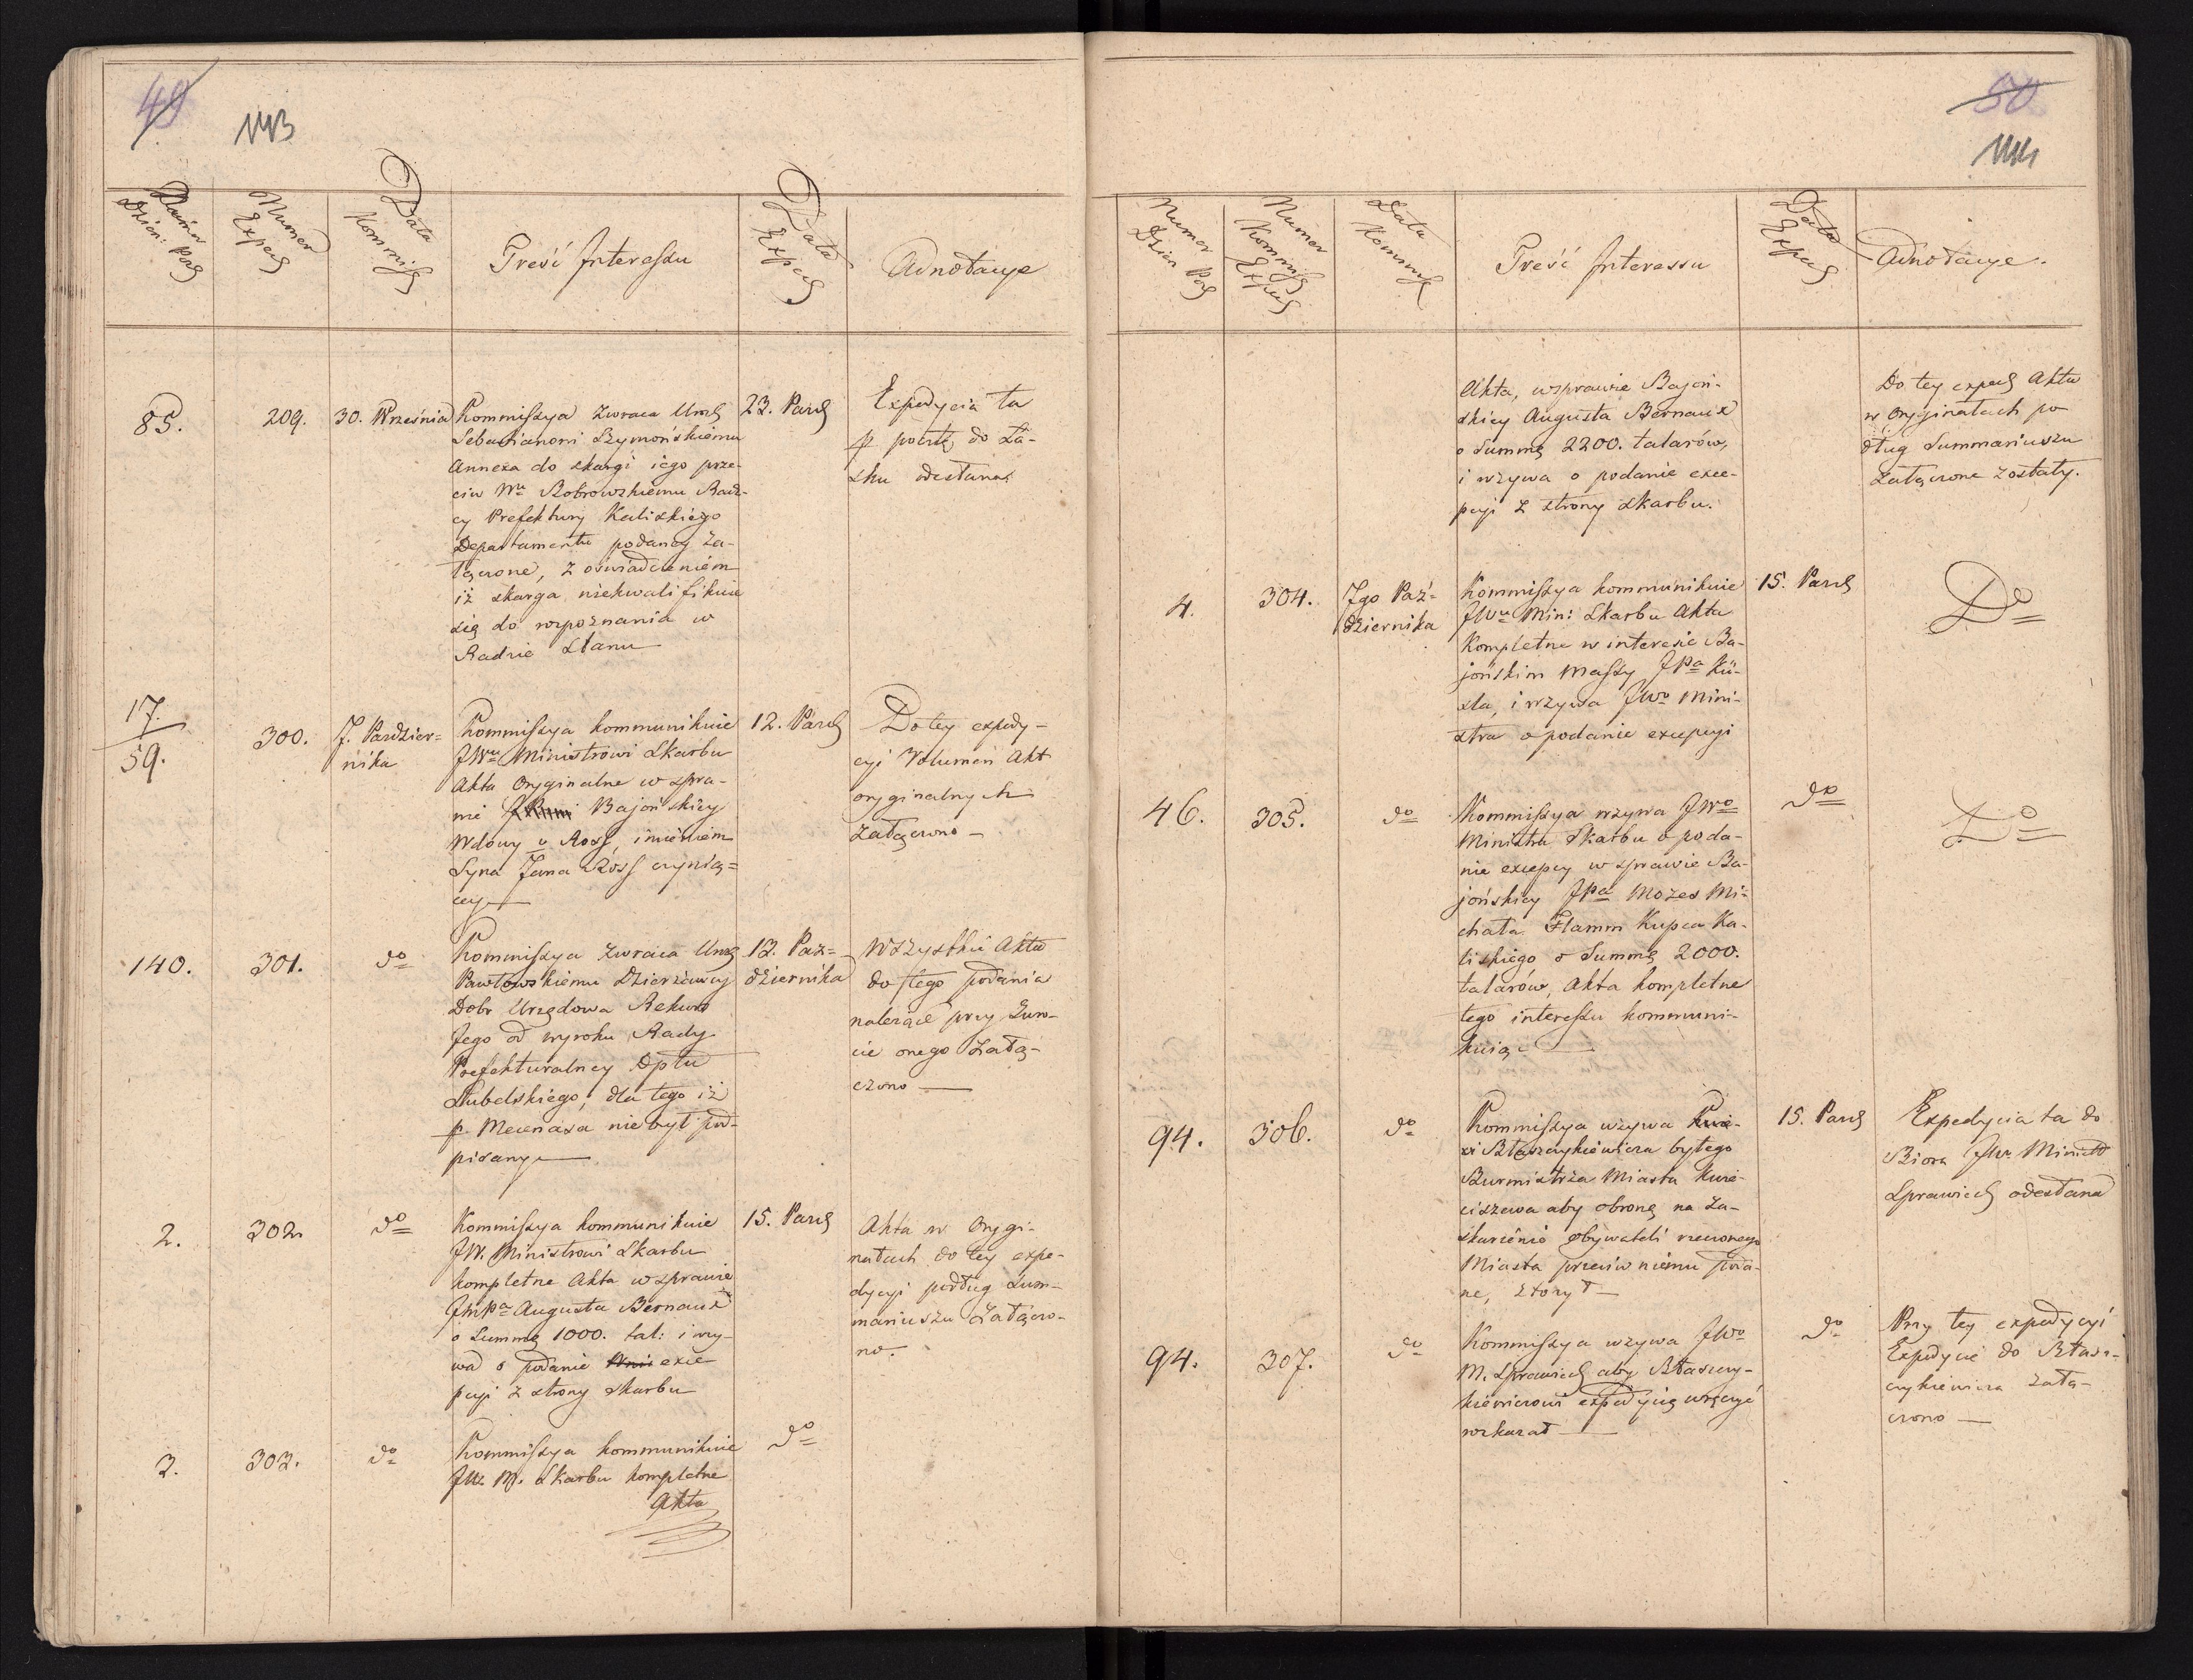 49
143
Numer Dzien: Pod
Numer Exped
Data Kommiss
Treść Interessu
Data Exped
Adnotacye
85.
209.
30. Września
Kommissya zwraca Urod
Sebastianowi Szymońskiemu
Annexa do skargi iego prze-
ciw Wu Bobrowskiemu Radz-
cy Prefektury Kaliskiego
Departamentu podaney za-
łączone, z oświadczeniem
iż skarga niekwalifikuie
się do rozpoznania w
Radzie Stanu
23. Pazd
Expedycia ta
p pocztę do Ła-
sku odesłana
17.
59.
300.
7. Pazdzier=
nika
Kommissya kommunikuie
JWu Ministrowi Skarbu
Akta Oryginalne w spra-
wie Bajońskiey
Wdowy v Ross, imieniem
Syna Jana Ross czynią=
cey
12. Pazd
Do tey expedy-
cyi Volumen Akt
oryginalnych
załączono
140.
301.
do
Kommissya zwraca Urod
Pawłowskiemu Dzierżawcy
Dobr Urzędowa Rekurs
Jego od wyroku Rady
Prefekturalney Dptu
Lubelskiego, dla tego iż
p. Mecenasa nie był pod-
pisany
13. Paz=
dziernika
Wszystkie Akta
do tego podania
należące przy zwro-
cie onego załą-
czono
2.
302.
do
Kommissya kommunikuie
JW. Ministrowi Skarbu
kompletne Akta w sprawie
JmPa Augusta Bernaux
o Summę 1000. tal: i wzy-
wa o podanie exce-
pcyi z strony skarbu
15. Pazd
Akta w Orygi-
nałach do tey expe-
dycyi podług Sum-
maryuszu załączo-
no.
3.
303.
do
Kommissya kommunikuie
JW. M. Skarbu kompletne
Akta
do
50
144
Numer Dzien Pod
Numer Kommiss Exped
Data Kommiss
Treść Interessu
Data Exped
Adnotacye.
Akta, w sprawie Bajoń-
skiey Augusta Bernaux
o Summę 2200. talarów,
i wzywa o podanie exce-
pcyi z strony skarbu.
Do tey exped Akta
w Oryginałach po
dług Summariuszu
załączone zostały.
4.
304.
7go Paź-
dziernika
Kommissya kommunikuie
JWu Mini: Skarbu Akta
Kompletne w interesie Ba-
jońskim Massy JPa Kü-
sla, i wzywa JWo Mini-
stra o podanie excepcyi
15. Pazd
Do
46.
305.
do
Kommissya wzywa JWo
Ministra Skarbu o poda-
nie excepcy w sprawie Ba-
jońskiey JPa Mozes Mi-
chała Flamm Kupca Ka-
liskiego o Summę 2000.
talarów, Akta kompletne
tego interessu kommuni-
kuiąc
do
Do
94.
306.
do
Kommissya wzywa
Błaszczykiewicza byłego
Burmistrza Miasta Kwie-
ciszewa aby obronę na za-
skarżenie obywateli rzeczonego
Miasta przeciw niemu poda-
ne, złożył
15. Pazd
Expedycia ta do
Biora JW. Ministr
Sprawied odesłana
94.
307.
do
Kommissya wzywa JWo
M. Sprawied aby Błaszczy-
kiewiczowi expedycią wręczyć
rozkazał
do
Przy tey expedycyi
Expedycie do Błasz-
czykiewicza załą-
czono